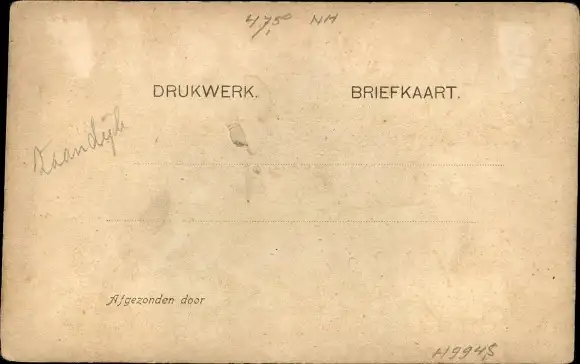 47,50 NH
DRUKWERK. BRIEFKAART.
Zaandijk
Afgezonden door
H9945